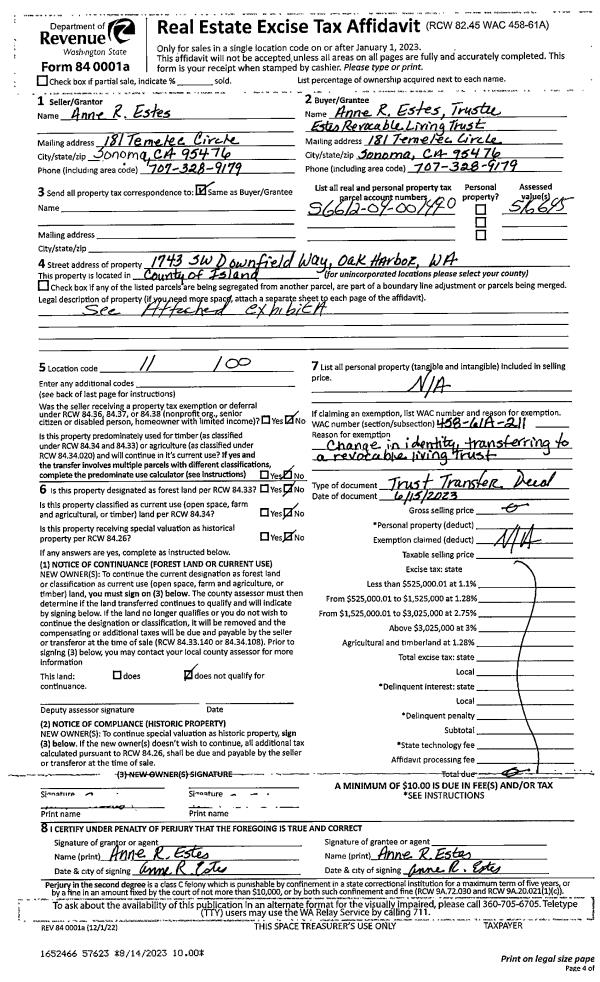 Department of
Revenue
Washington State
Form 84 0001a
Real Estate Excise Tax Affidavit (RCW 82.45 WAC 458-61A)
Only for sales in a single location code on or after January 1, 2023.
This affidavit will not be accepted unless all areas on all pages are fully and accurately completed. This
form is your receipt when stamped by cashier. Please type or print.
Check box if partial sale, indicate % ____ sold.
List percentage of ownership acquired next to each name.
1 Seller/Grantor
Name Anne R. Estes
Mailing address 181 Temelec Circle
City/state/zip Sonoma, CA 95476
Phone (including area code) 707-328-9179
2 Buyer/Grantee
Name Anne R. Estes, Trustee
Estes Revocable Living Trust
Mailing address 181 Temelec Circle
City/state/zip Sonoma, CA 95476
Phone (including area code) 707-328-9179
3 Send all property tax correspondence to: Same as Buyer/Grantee
Name
Mailing address
City/state/zip
List all real and personal property tax
parcel account numbers
Personal
property?
Assessed
value(s)
4 Street address of property 1743 SW Downfield Way, Oak Harbor, WA
This property is located in County of Island (for unincorporated locations please select your county)
Check box if any of the listed parcels are being segregated from another parcel, are part of a boundary line adjustment or parcels being merged.
Legal description of property (if you need more space, attach a separate sheet to each page of the affidavit).
See Attached Exhibit A
5 Location code 11 / 00
Enter any additional codes
(see back of last page for instructions)
Was the seller receiving a property tax exemption or deferral
under RCW 84.36, 84.37, or 84.38 (nonprofit org., senior
citizen or disabled person, homeowner with limited income)? Yes No
Is this property predominately used for timber (as classified
under RCW 84.34 and 84.33) or agriculture (as classified under
RCW 84.34.020) and will continue in it's current use? If yes and
the transfer involves multiple parcels with different classifications,
complete the predominate use calculator (see instructions) Yes No
6 Is this property designated as forest land per RCW 84.33? Yes No
Is this property classified as current use (open space, farm
and agricultural, or timber) land per RCW 84.34? Yes No
Is this property receiving special valuation as historical
property per RCW 84.26? Yes No
If any answers are yes, complete as instructed below.
(1) NOTICE OF CONTINUANCE (FOREST LAND OR CURRENT USE)
NEW OWNER(S): To continue the current designation as forest land
or classification as current use (open space, farm and agriculture, or
timber) land, you must sign on (3) below. The county assessor must then
determine if the land transferred continues to qualify and will indicate
by signing below. If the land no longer qualifies or you do not wish to
continue the designation or classification, it will be removed and the
compensating or additional taxes will be due and payable by the seller
or transferor at the time of sale (RCW 84.33.140 or 84.34.108). Prior to
signing (3) below, you may contact your local county assessor for more
information
This land: does does not qualify for
continuance.
Deputy assessor signature Date
(2) NOTICE OF COMPLIANCE (HISTORIC PROPERTY)
NEW OWNER(S): To continue special valuation as historic property, sign
(3) below. If the new owner(s) doesn't wish to continue, all additional tax
calculated pursuant to RCW 84.26, shall be due and payable by the seller
or transferor at the time of sale.
(3) NEW OWNER(S) SIGNATURE
Signature Signature
Print name Print name
7 List all personal property (tangible and intangible) included in selling
price.
N/A
If claiming an exemption, list WAC number and reason for exemption.
WAC number (section/subsection) 458-61A-211
Reason for exemption
Change in identity, transferring to
a revocable living trust
Type of document Trust Transfer Deed
Date of document 6/15/2023
Gross selling price 0
*Personal property (deduct)
Exemption claimed (deduct) N/A
Taxable selling price
Excise tax: state
Less than $525,000.01 at 1.1%
From $525,000.01 to $1,525,000 at 1.28%
From $1,525,000.01 to $3,025,000 at 2.75%
Above $3,025,000 at 3%
Agricultural and timberland at 1.28%
Total excise tax: state
Local
*Delinquent interest: state
Local
*Delinquent penalty
Subtotal
*State technology fee
Affidavit processing fee
Total due 0
A MINIMUM OF $10.00 IS DUE IN FEE(S) AND/OR TAX
*SEE INSTRUCTIONS
8 I CERTIFY UNDER PENALTY OF PERJURY THAT THE FOREGOING IS TRUE AND CORRECT
Signature of grantor or agent
Name (print) Anne R. Estes
Date & city of signing Anne R. Estes
Signature of grantee or agent
Name (print) Anne R. Estes
Date & city of signing Anne R. Estes
Perjury in the second degree is a class C felony which is punishable by confinement in a state correctional institution for a maximum term of five years, or
by a fine in an amount fixed by the court of not more than $10,000, or by both such confinement and fine (RCW 9A.72.030 and RCW 9A.20.021(1)(c)).
To ask about the availability of this publication in an alternate format for the visually impaired, please call 360-705-6705. Teletype
(TTY) users may use the WA Relay Service by calling 711.
REV 84 0001a (12/1/22) THIS SPACE TREASURER'S USE ONLY TAXPAYER
1652466 57623 #8/14/2023 10.00#
Print on legal size pape
Page 4 of